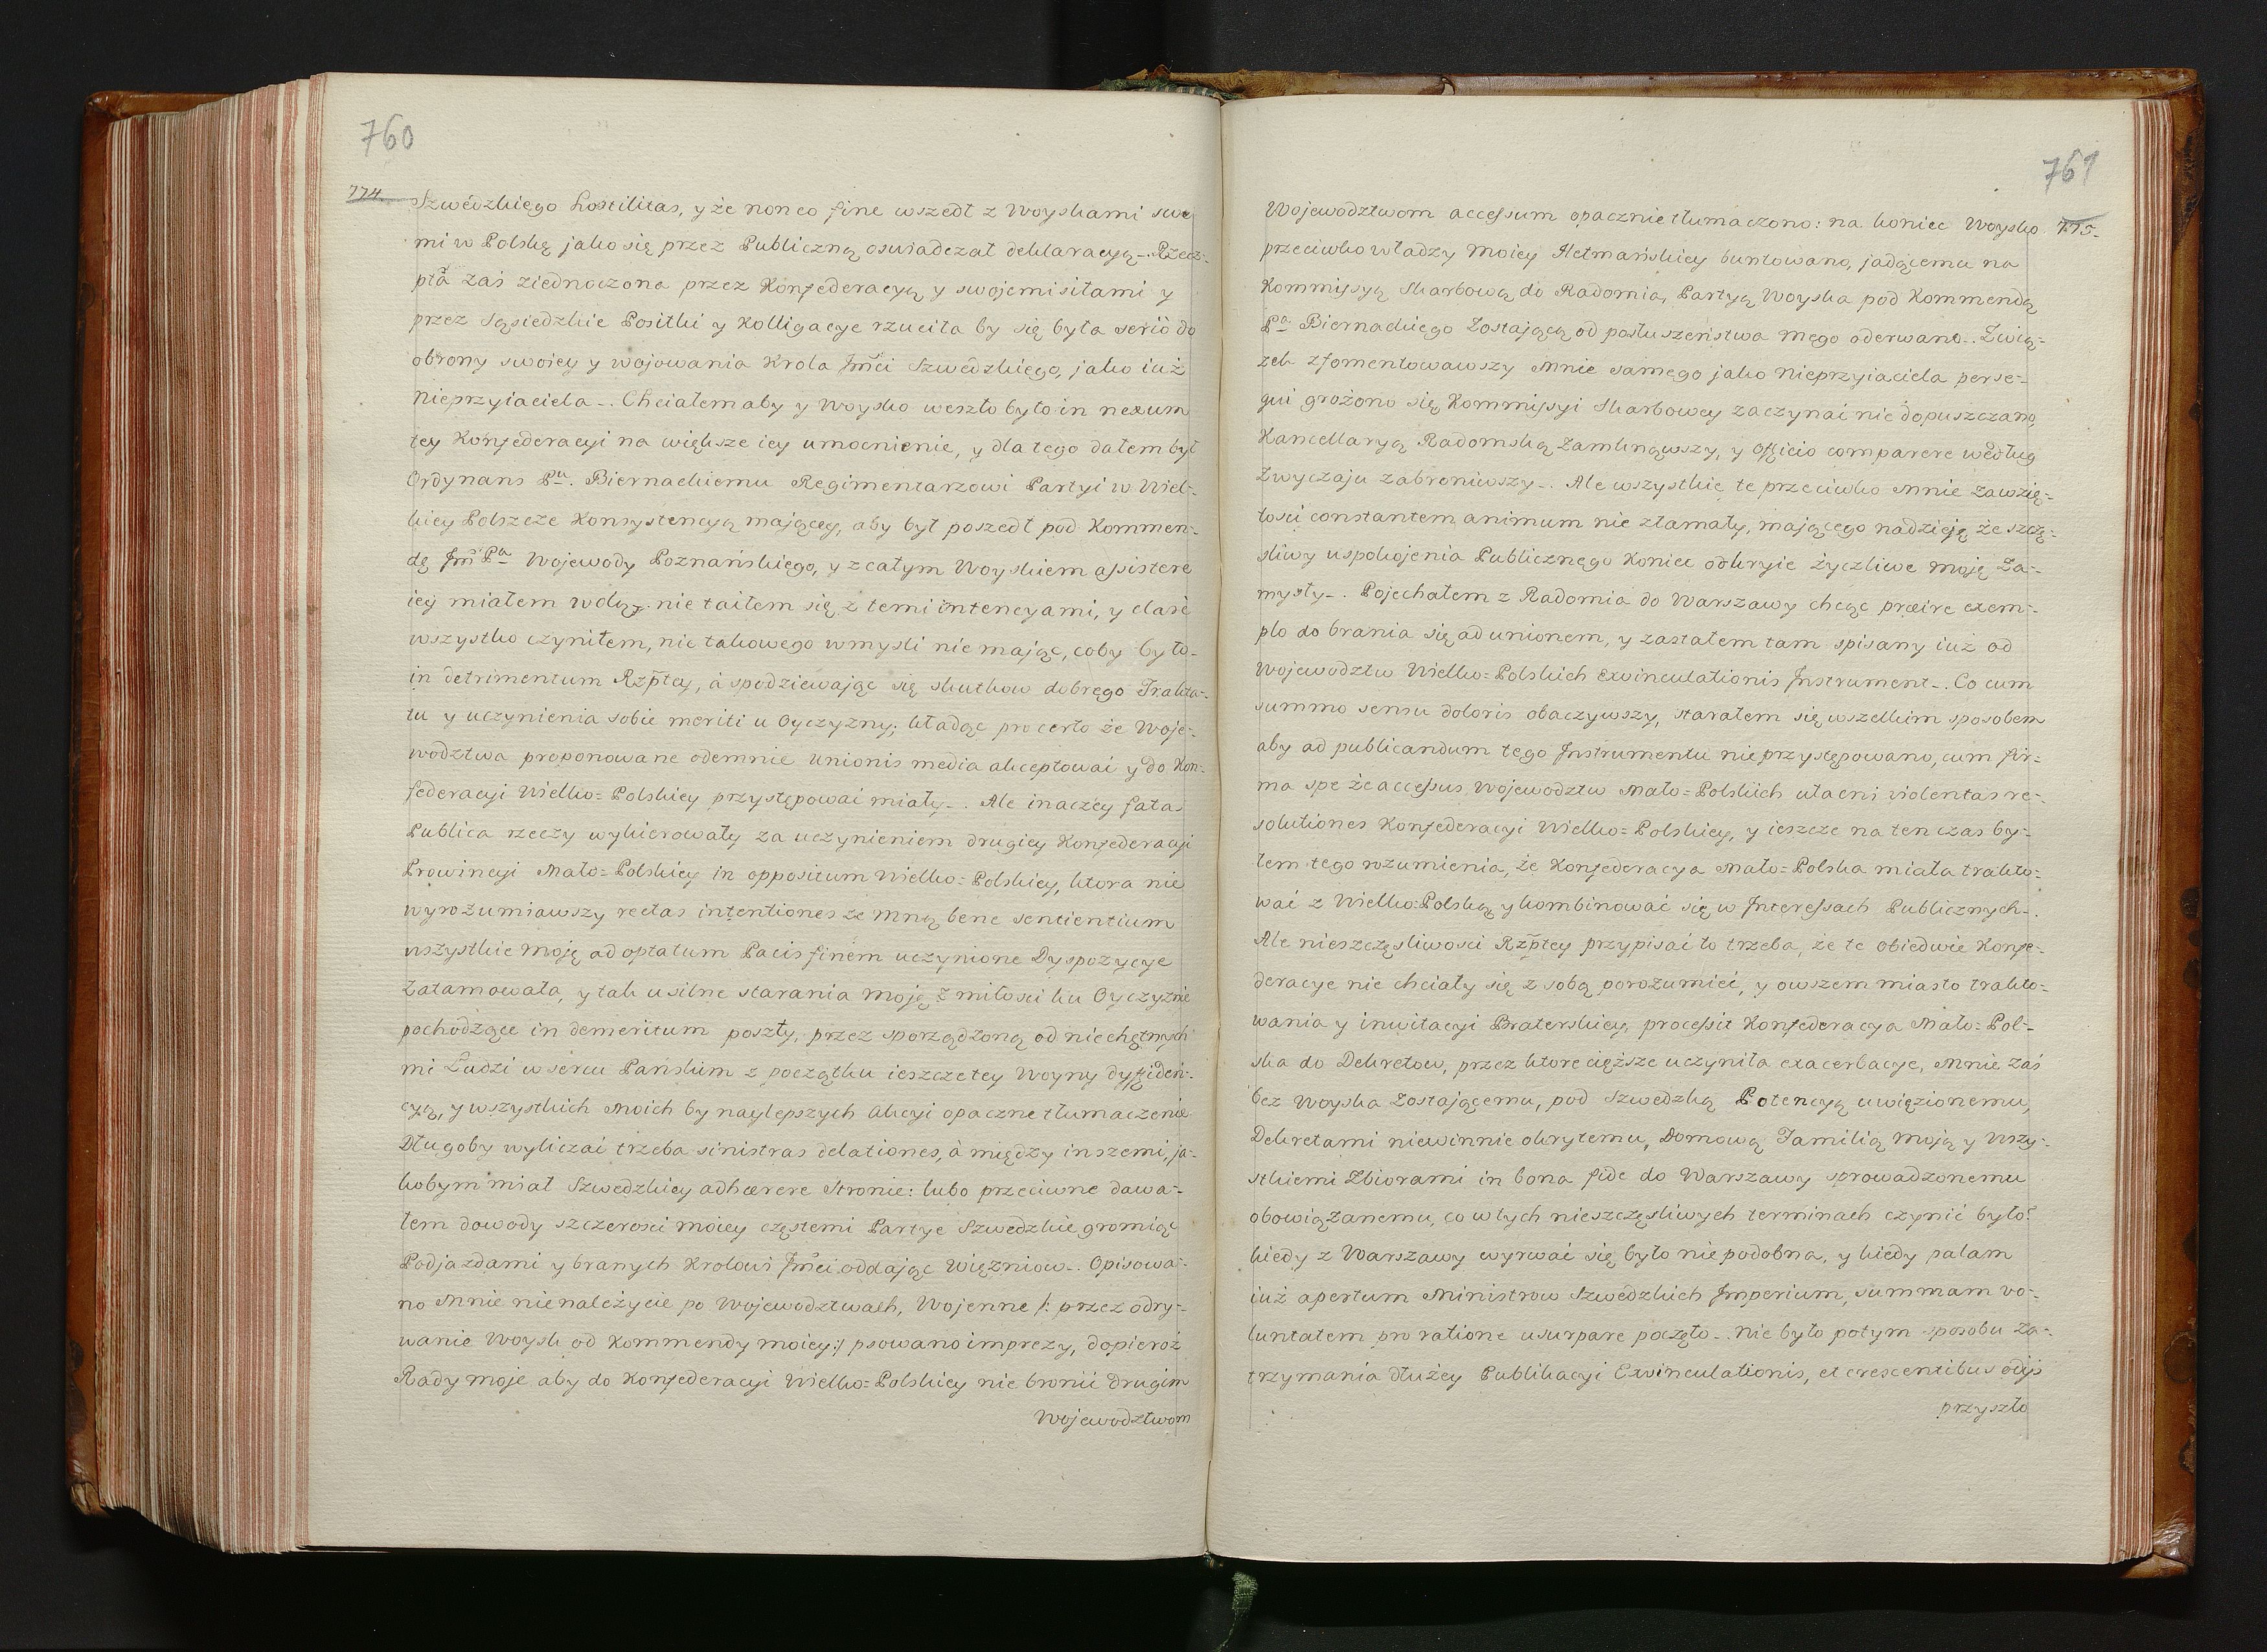 760
774.
Szwedzkiego hostilitas, y że non eo fine wszedł z Woyskami swe
mi w Polskę jako się przez Publiczną oswiadczał deklaracyą -. Rzecz-
plta zaś ziednoczona przez Konfederacyą y swojemi siłami y
przez Sąsiedzkie Posiłki y Kolligacye rzuciła by się była seriò do
obrony swoiey y wojowania Krola Jmci Szwedzkiego, jako iuż
Nieprzyiaciela -. Chciałem aby y Woysko weszło było in nexum
tey Konfederacyi na większe iey umocnienie, y dla tego dałem był
Ordynans Pu. Biernackiemu Regimentarzowi Partyi w Wiel-
kiey Polszcze Konsystencyą maiącey, aby był poszedł pod Kommen-
dę Jm Pa Wojewody Poznańskiego, y z całym Woyskiem assistere
iey miałem wolą. nie taiłem się z temi intencyami, y clarè
wszystko czyniłem, nic takowego w mysli nie mając, coby było
in detrimentum Rzptey, à spodziewając się skutkow dobrego Trakta-
tu y uczynienia sobie meriti u Oyczyzny; kładąc pro certo że Woje-
wodztwa proponowane odemnie unionis media akceptowai y do Kon-
federacyi Wielko=Polskiey przystępowai miały -. Ale inaczey fata
Publica rzeczy wykierowały za uczynieniem drugiey Konfederacyi
Prowincyi Mało=Polskiey in oppositum Wielko=Polskiey, ktora nie
wyrozumiawszy rectas intentiones ze mną bene sentientium
wszystkie moję ad optatum Pacis finem uczynione Dyspozycye
zatamowała, y tak usilne starania moję z miłosci ku Oyczyznie
pochodzące in demeritum poszły, przez sporządzoną od niechętnych
mi Ludzi w sercu Pańskim z początku ieszcze tey Woyny dyffiden-
cyą, y wszystkich moich by naylepszych akcyi opaczne tłumaczenie
Długoby wyliczai trzeba sinistras delationes, à między inszemi, ja-
kobym miał Szwedzkiey adhærere Stronie: lubo przeciwne dawa-
łem dowody szczerosci moiey częstemi Partye Szwedzkie gromiąc
Podjazdami y branych Krolowi Jmci oddając Więzniow -. Opisowa-
no Mnie nienależycie po Wojewodztwach, Wojenne /: przez odry-
wanie Woysk od Kommendy moiey :/ psowano imprezy, dopieroż
Rady moje aby do Konfederacyi Wielko=Polskiey nie bronii drugim
Wojewodztwom
761
775.
Wojewodztwom accessum opacznie tłumaczono: na koniec Woysko
przeciwko władzy moiey Hetmańskiey buntowano, jadącemu na
Kommissyą Skarbową do Radomia, Partyą Woyska pod Kommendą
Pa Biernackiego zostającą od posłuszeństwa mego oderwano -. Zwią-
zek zfomentowawszy Mnie samego jako Nieprzyiaciela perse-
qui grożono się Kommissyi Skarbowey zaczynai nie dopuszczano,
Kancellaryą Radomską zamknąwszy, y Officio comparere według
Zwyczaju zabroniwszy -. Ale wszystkie te przeciwko Mnie zawzię-
tosci constantem animum nie złamały, mającego nadzieję że szczę-
sliwy uspokojenia Publicznego Koniec odkryie życzliwe moję Za-
mysły -. Pojechałem z Radomia do Warszawy chcąc præire exem-
plo do brania się ad unionem, y zastałem tam spisany iuż od
Wojewodztw Wielko=Polskich Exvinculationis Instrument -. Co cum
summo sensu doloris obaczywszy, starałem się wszelkim sposobem
aby ad publicandum tego Instrumentu nie przystępowano, cum fir-
ma spe że accessus Wojewodztw Mało=Polskich ułacni violentas re-
solutiones Konfederacyi Wielko=Polskiey, y ieszcze na ten czas by-
łem tego rozumienia, że Konfederacya Mało=Polska miała trakto-
wać z Wielko=Polską y kombinować się w Interessach Publicznych -.
Ale nieszczęsliwosci Rzptey przypisai to trzeba, że te obiedwie Konfe-
deracye nie chciały się z sobą porozumieć, y owszem miasto trakto-
wania y inwitacyi Braterskiey, processit Konfederacya Mało=Pol-
ska do Dekretow, przez ktore cięższe uczyniła exacerbacye, Mnie zaś
bez Woyska zostającemu, pod Szwedzką Potencyą uwięzionemu,
Dekretami niewinnie okrytemu, Domową Familią moją y wszy-
stkiemi Zbiorami in bona fide do Warszawy sprowadzonemu
obowiązanemu, co w tych nieszczęsliwych terminach czynić było?
kiedy z Warszawy wyrwać się było niepodobna, y kiedy palam
iuż apertum Ministrow Szwedzkich Imperium, summam vo-
luntatem pro ratione usurpare poczęło -. nie było potym sposobu Za-
trzymania dłużey Publikacyi Exvinculationis, et crescentibus odijs
przyszło